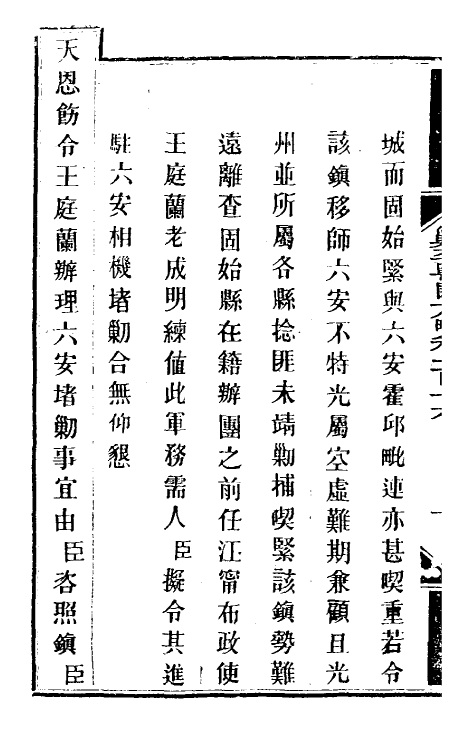 城而固始緊與六安霍邱毗連亦甚喫重若令
該鎮移師六安不特光屬空虛難期兼顧且光
州並所屬各縣捻匪未靖勦捕喫緊該鎮勢難
遠離查固始縣在籍辦團之前任江甯布政使
王庭蘭老成明練值此軍務需人臣擬令其進
駐六安相機堵勦合無仰懇
天恩飭令王庭蘭辦理六安堵勦事宜由臣咨照鎮臣